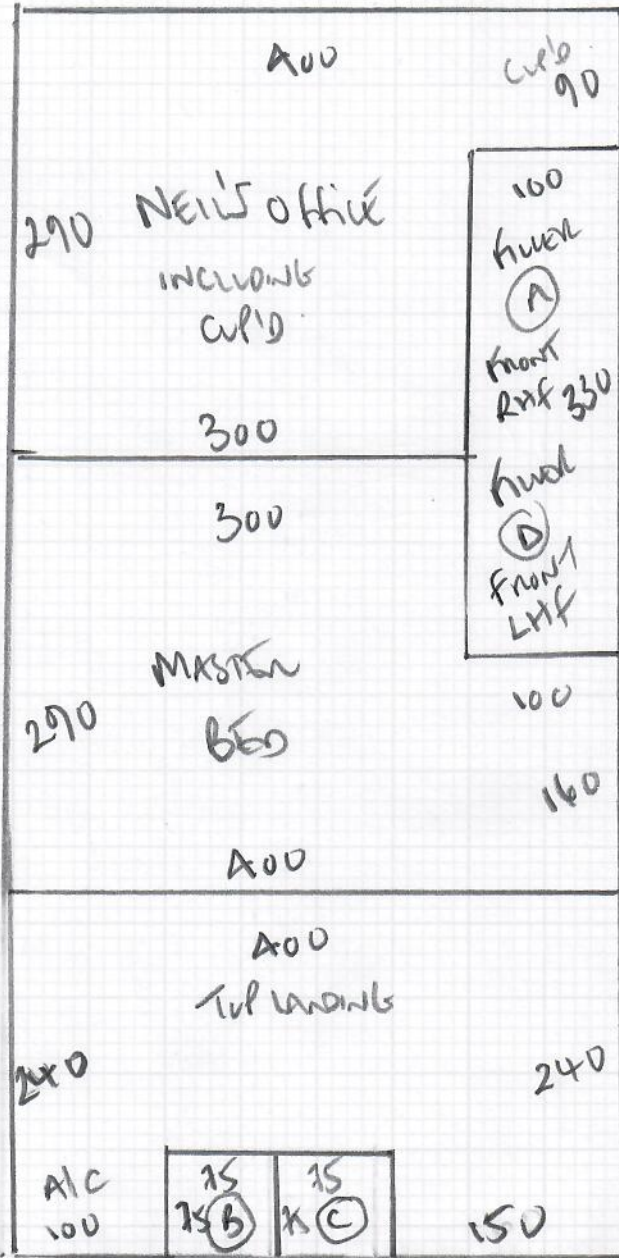 400
CUP'D
90
290
NEIL'S OFFICE
INCLUDING
CUP'D
300
100
FILLER
A
FRONT
RHF 330
FILLER
D
FRONT
LHF
300
MASTER
BED
290
100
160
400
400
TOP LANDING
240
240
A/C
100
75
75 B
75
75 C
150